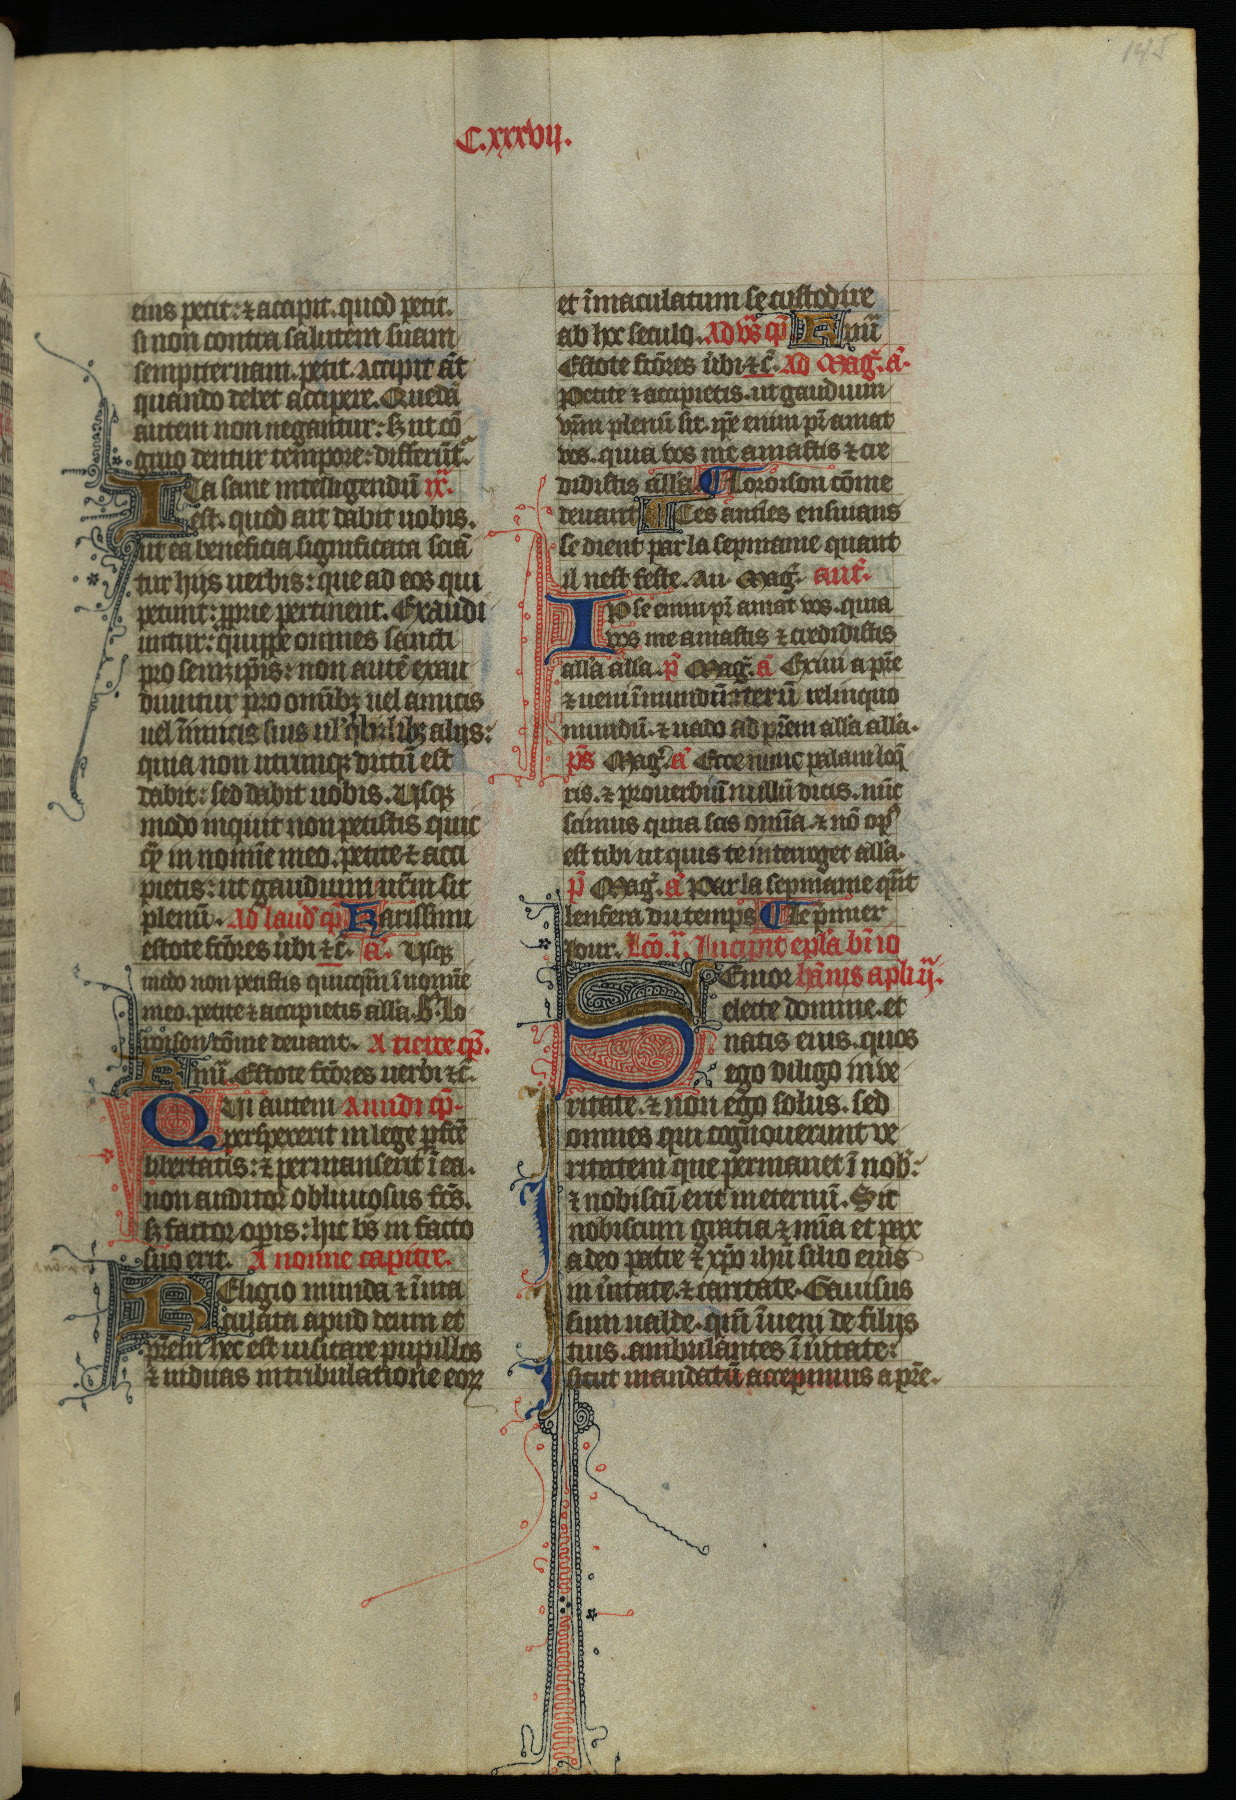 145
C.xxxvij.
eius petit: ⁊ accipit. quod petit.
si non contra salutem suam
sempiternam. petit. Accipit aūt
quando debet accipere. Quedā
autem non negantur: sꝫ ut cō
gruo dentur tempore: differūt᷑.
Ita sane intelligendū ix.
est. quod ait dabit uobis.
ut ea beneficia significata sciā
tur hijs uerbis: que ad eos qui
petunt: ꝓprie pertinent. Exaudi
untur: quippe omnes sancti
pro semꝫip̄is: non autē exau
diuntur pro omībꝫ uel amicis
uel īimicis suis ul' qībuslibꝫ alijs:
quia non utrumqꝫ dictū est
dabit: sed dabit uobis. Usqꝫ
modo inquit non petistis quic
q̄ in nomīe meo. petite ⁊ acci
pietis: ut gaudium ur̄m sit
plenū. Ad laud' cp̄ Karissimi
estote fc̄ores ūbi ⁊c̄. a᷑. Usqꝫ
modo non petistis quicq̄m ī nomīe
meo. petite ⁊ accipietis all'a. ꝶ. Lo
roison cōme deuant. A tierce cp̄.
Kmī. Estote fc̄ores uerbi ⁊c̄.
Qui autem A midi cp̄.
perspexerit in lege ꝑfc̄e
libertatis: ⁊ permanserit ī ea.
non auditor obliuiosus fc̄s.
sꝫ factor opis: hic bs̄ in facto
suo erit. A nonne capitre.
Religio munda ⁊ īma
culata apud deum et
pr̄em hec est uisitare pupillos
⁊ uiduas in tribulatione eoꝝ
et īmaculatum se custodire
ab hoc seculo. Ad vs̄ cp̄ Kmī
Estote fc̄ores ūbi ⁊c̄. Ad Mag᷑. a᷑.
Petite ⁊ accipietis. ut gaudium
vr̄m plenū sit. ip̄e enim pr̄ amat
vos. quia vos me amastis ⁊ cre
didistis all'a. Loroison cōme
deuant. Ces antn̄es ensiuans
se dient par la sepmaine quant
il nest feste. Au Mag᷑. ant᷑.
Ipse enim pr̄ amat vos. quia
vos me amastis ⁊ credidistis
all'a all'a. p̄ Mag᷑. a᷑ Exiui a pr̄e
⁊ ueni ī mundū iterū relinquo
mundū. ⁊ uado ad pr̄em all'a all'a.
ps̄ Mag᷑. a᷑ Ecce nunc palam loq̄
ris. ⁊ prouerbiū nullū dicis. nūc
scimus quia scis omīa. ⁊ nō op᷒
est tibi ut quis te interroget all'a.
p̄ Mag᷑. a᷑ Par la sepmaine qn̄t
len fera du temps Le p̄mier
iour. Lc̄o. i. Incipit epl'a bī io
Senior hānis apl'i ij.
electe domine. et
natis eius. quos
ego diligo in ve
ritate. ⁊ non ego solus. sed
omnes qui cognouerunt ve
ritatem que permanet ī nob᷒:
⁊ nobiscū erit in eternū. Sit
nobiscum gratia ⁊ mīa et pax
a deo patre ⁊ xp̄o ihū filio eius
in ūitate. ⁊ caritate. Gauisus
sum ualde. qm̄ īueni de filijs
tuis. ambulantes ī ūitate:
sicut mandatū accepimus a pr̄e.